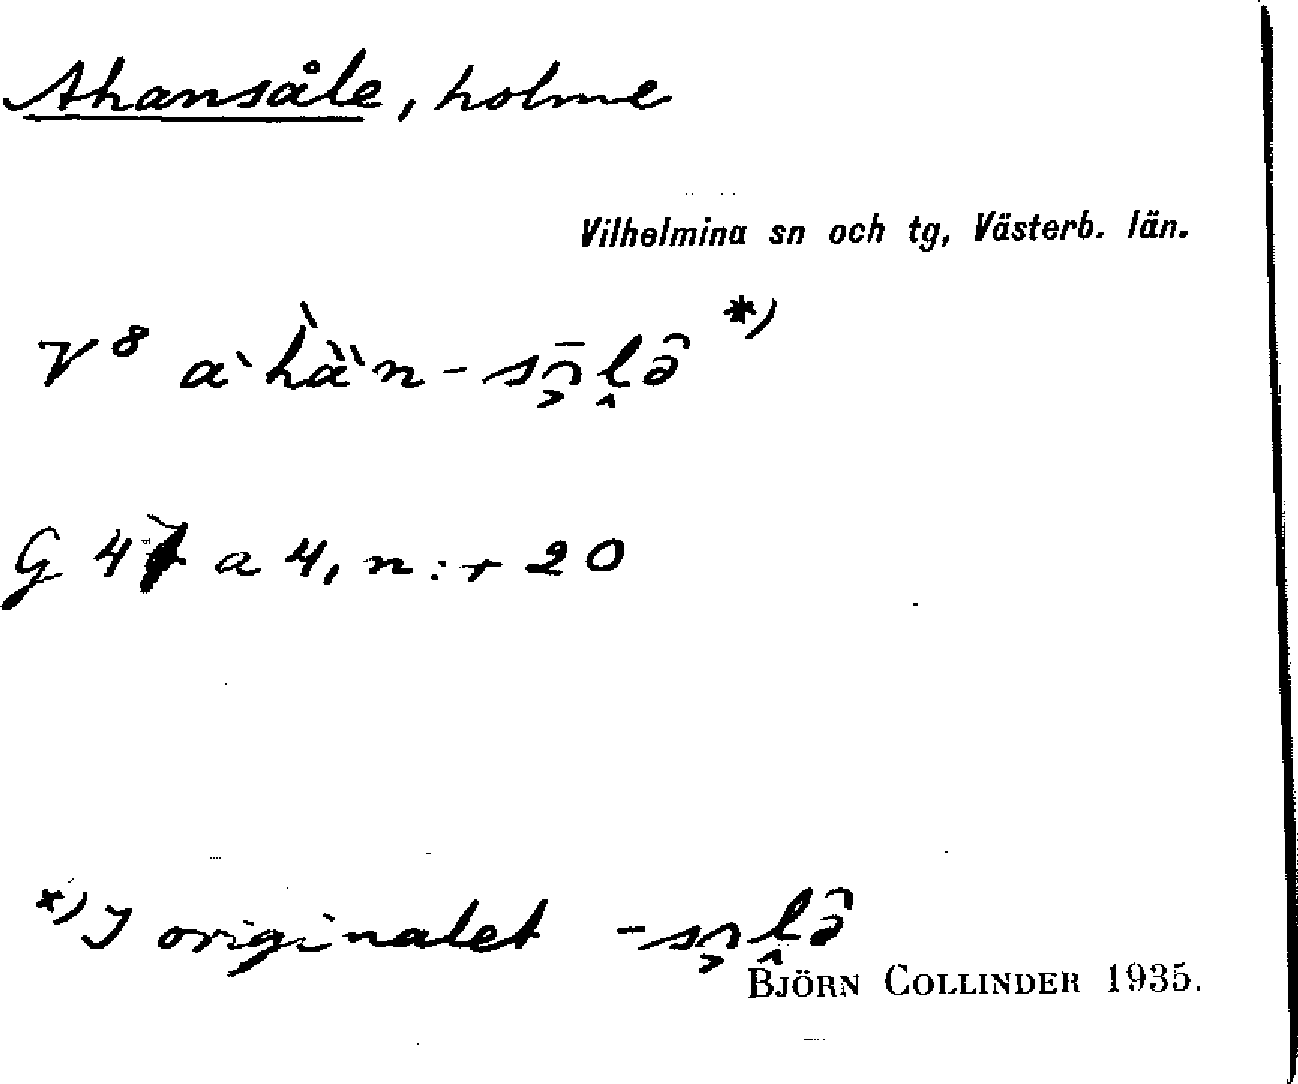 Ahansåle, holme
Vilhelmina sn och tg, Västerb. län.
V 8 a`hàǹ-sō̜ḽə̑ *)
G 47 a 4, n:r 20
*) I originalet -so̜ḽə̑
BJÖRN COLLINDER 1935.